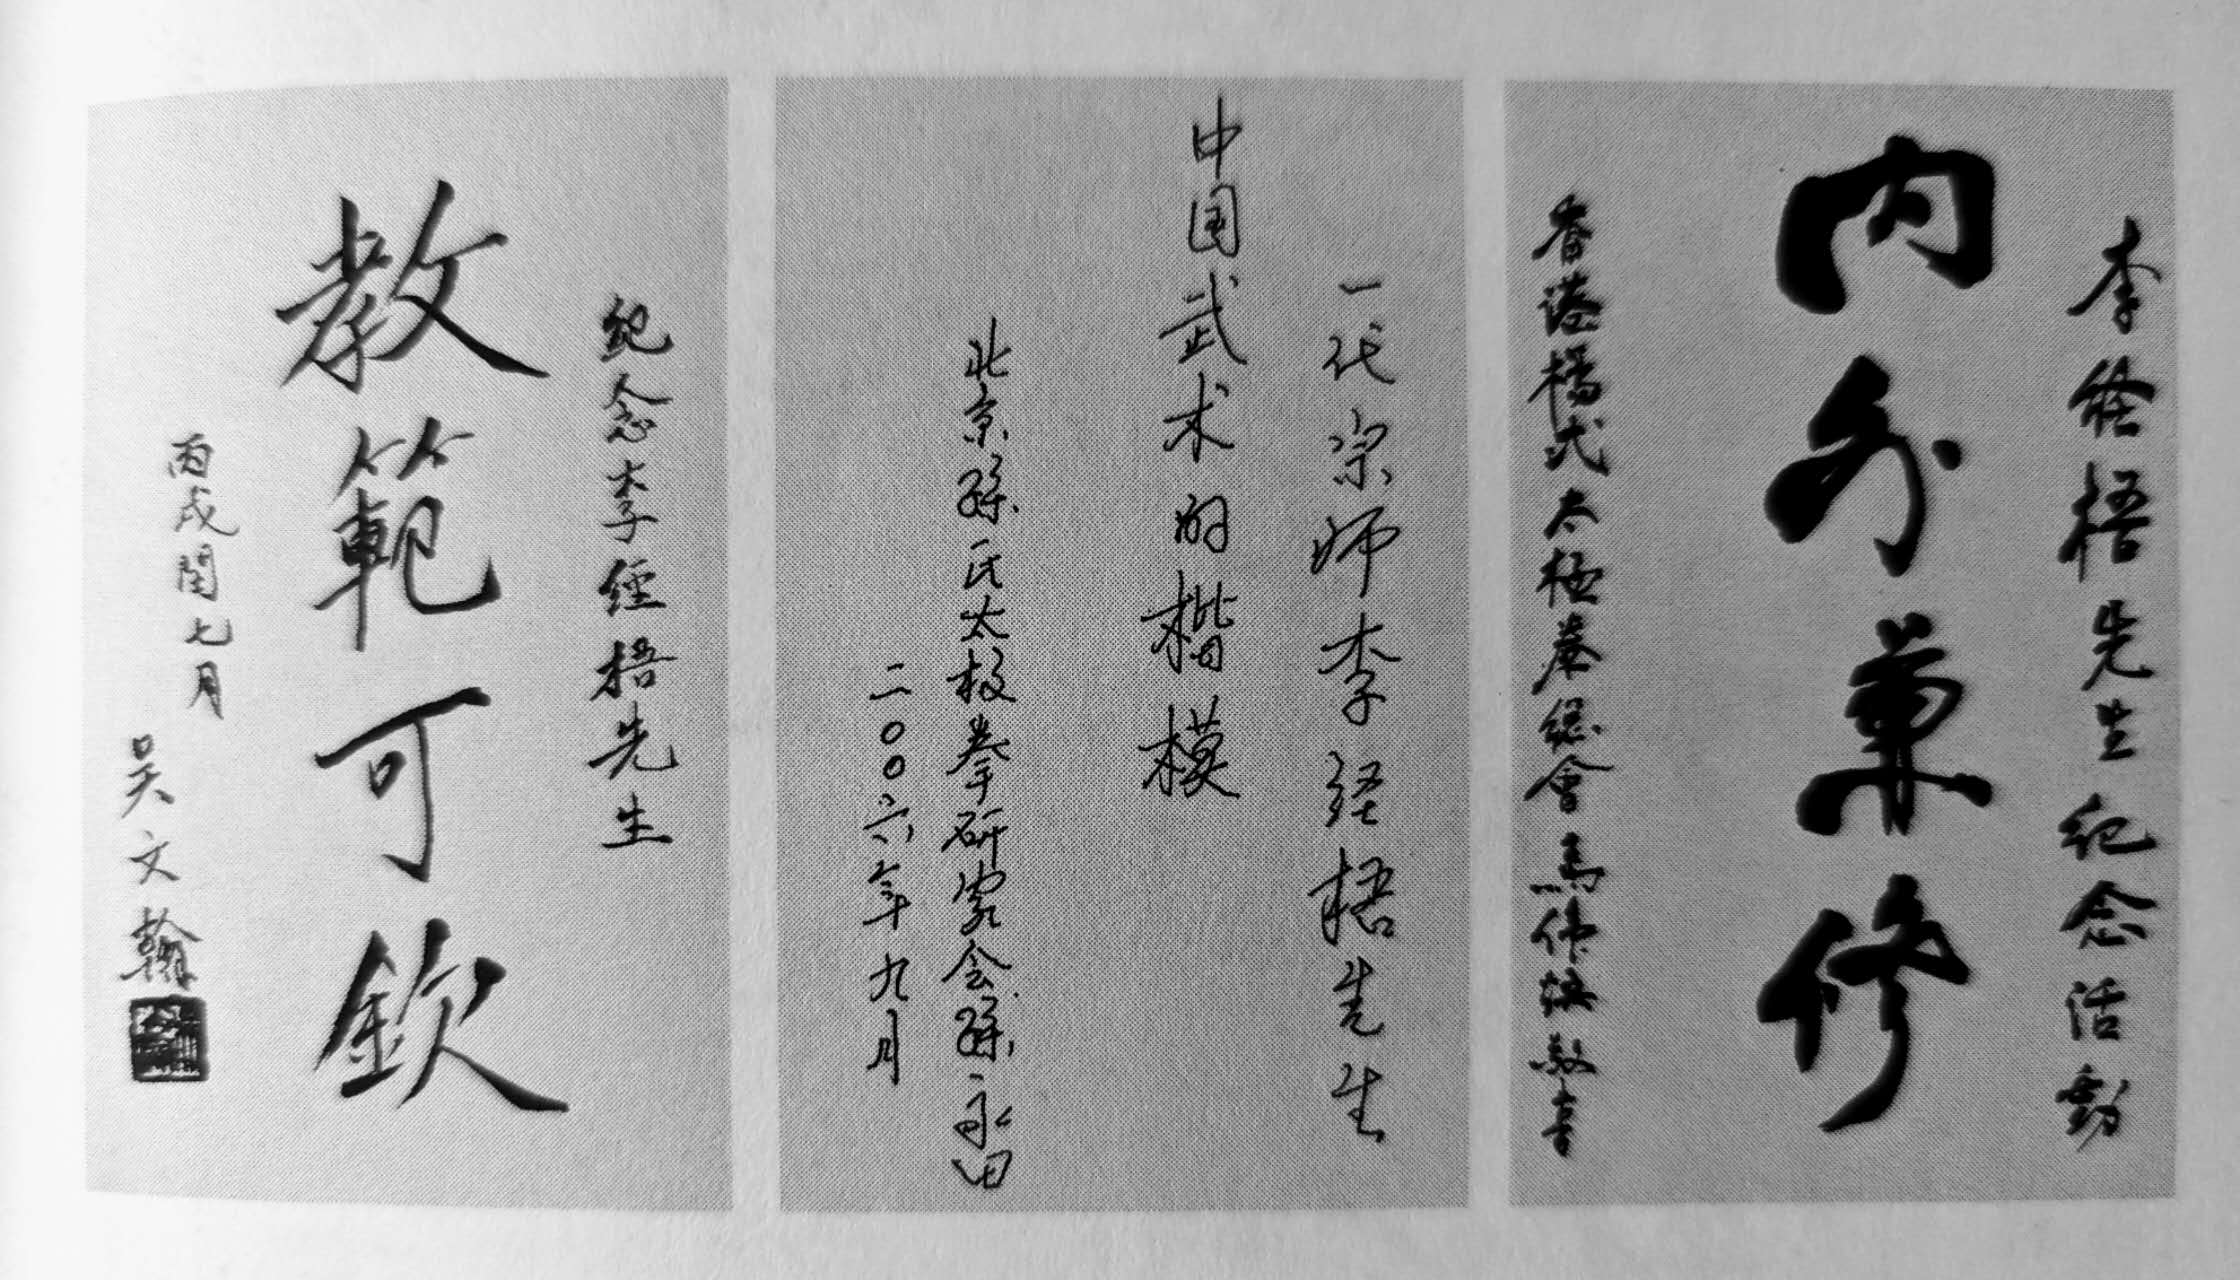 李經梧先生纪念活動
内外兼修
香港楊式太極拳總會馬偉煥敬書
一代宗师李经梧先生
中国武术的楷模
北京孫氏太极拳研究会孫永田
二〇〇六年九月
紀念李經梧先生
教範可欽
丙戌閏七月
吴文翰